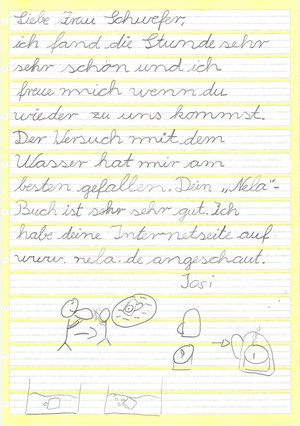 Liebe Frau Schwefer,
ich fand die Stunde sehr
sehr schön und ich
freue mich wenn du
wieder zu uns kommst.
Der Versuch mit dem
Wasser hat mir am
besten gefallen. Dein „Nela"-
Buch ist sehr sehr gut. Ich
habe deine Internetseite auf
www.nela.de angeschaut.
Josi